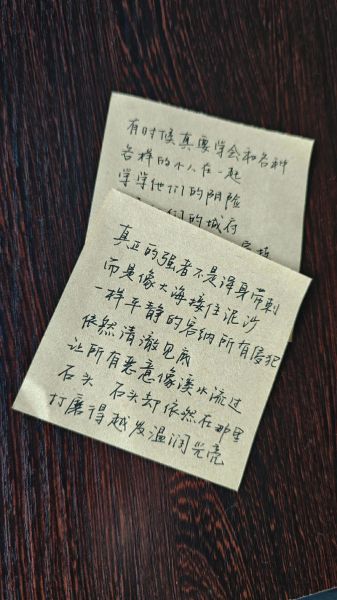 有时候真要学会和各种
各样的小人在一起
学学他们的阴险
们的城府
真正的强者不是浑身带刺
而是像大海接住泥沙
一样平静的容纳所有侵犯
依然清澈见底
让所有恶意像溪水流过
石头 石头却依然在那里
打磨得越发温润光亮